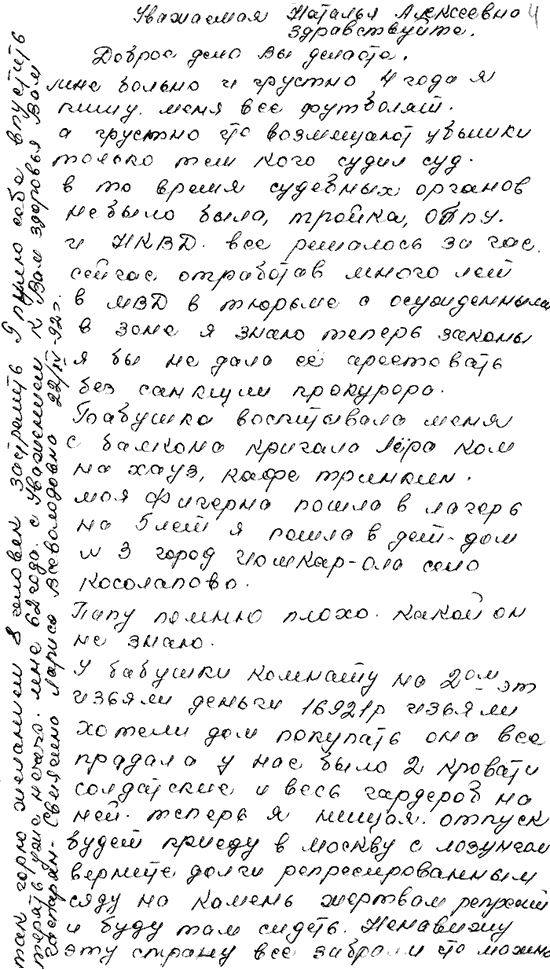 Уважаемая Наталья Алексеевна 4
здравствуйте.
Доброе дело Вы делаете.
мне больно и грустно 4 года я
пишу. меня все футболят.
а грустно что возмещают убытки
только тем кого судил суд.
в то время судебных органов
небыло была, тройка, ОГПУ.
и НКВД. все решалось за час.
сейчас отработав много лет
в МВД в тюрьме с осужденными
в зоне я знаю теперь законы
я бы не дала её арестовать
без санкции прокурора.
Бабушка воспитывала меня
с балкона кричала Лёра ком
на хауз, кафе тринкин.
моя фигерна пошла в лагерь
на 5 лет я пошла в дет-дом
N 3 город Йошкар-ола село
Косолапово.
Папу помню плохо. какой он
не знаю.
У бабушки комнату на 2ом эт
изъяли деньги 16921р изъяли
хотели дом покупать она все
прадала у нас было 2 кровати
солдатские и весь гардероб на
ней. теперь я нищая. отпуск
будет приеду в москву с лозунгом
верните долги репресированным
сяду на камень жертвам репрессий
и буду там сидеть. Ненавижу
эту страну все забрали что можно
так горю желанием 8 человек застрелить
терять уже нечего. мне 62 года. с Уважением к Вам здоровья Вам
Лариса Всеволодовна 22/IV-92г.